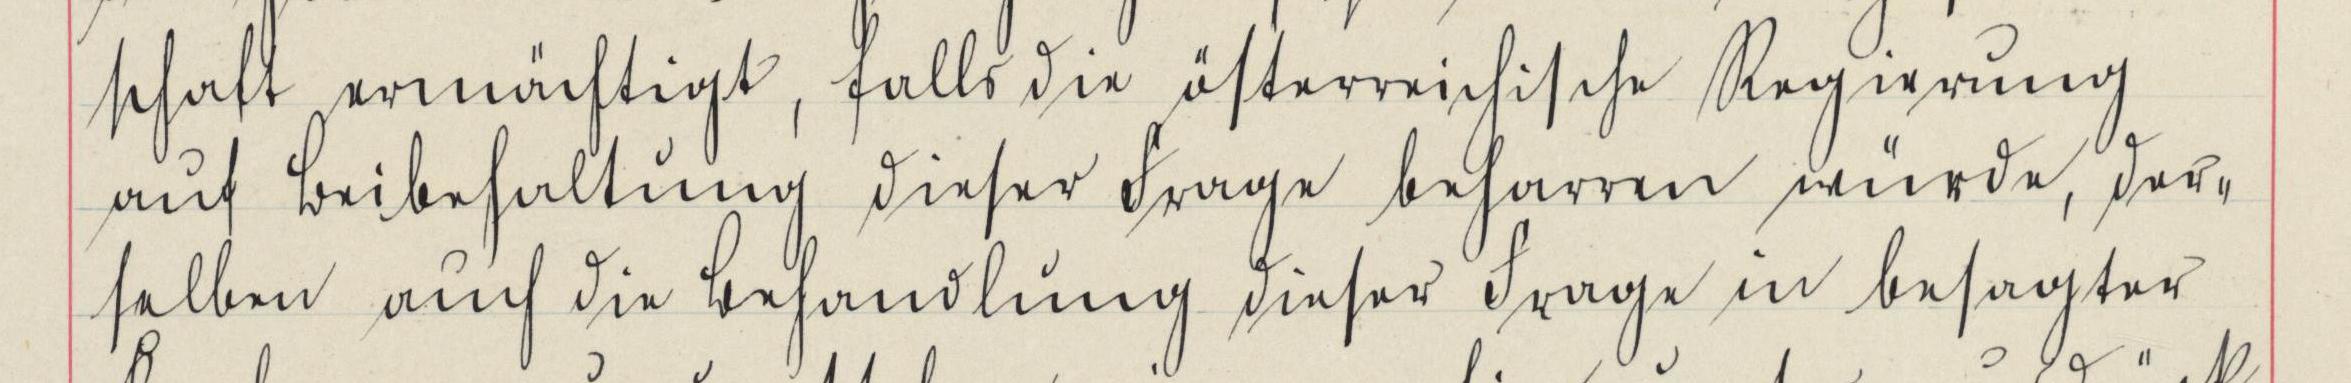 schaft ermächtigt, falls die österreichische Regierung
auf Beibehaltung dieser Frage beharren würde, der=
selben auch die Behandlung dieser Frage in besagter